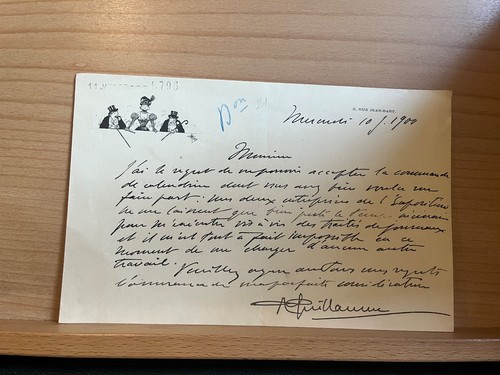 Don
RUE JEAN-BART
Mercredi 10 J. 1900
Monsieur
J'ai le regret de ne pouvoir accepter la commande
de calendrier dont vous avez bien voulu me
faire part. Mes deux entreprises de l'Exposition
ne me laissent que bien juste le temps
pour m'acquitter vis à vis des traités
et il m'est tout à fait impossible en ce
moment de me charger d'aucun autre
travail. Veuillez agréer avec tous mes regrets
l'assurance de ma parfaite considération
AGuillaume